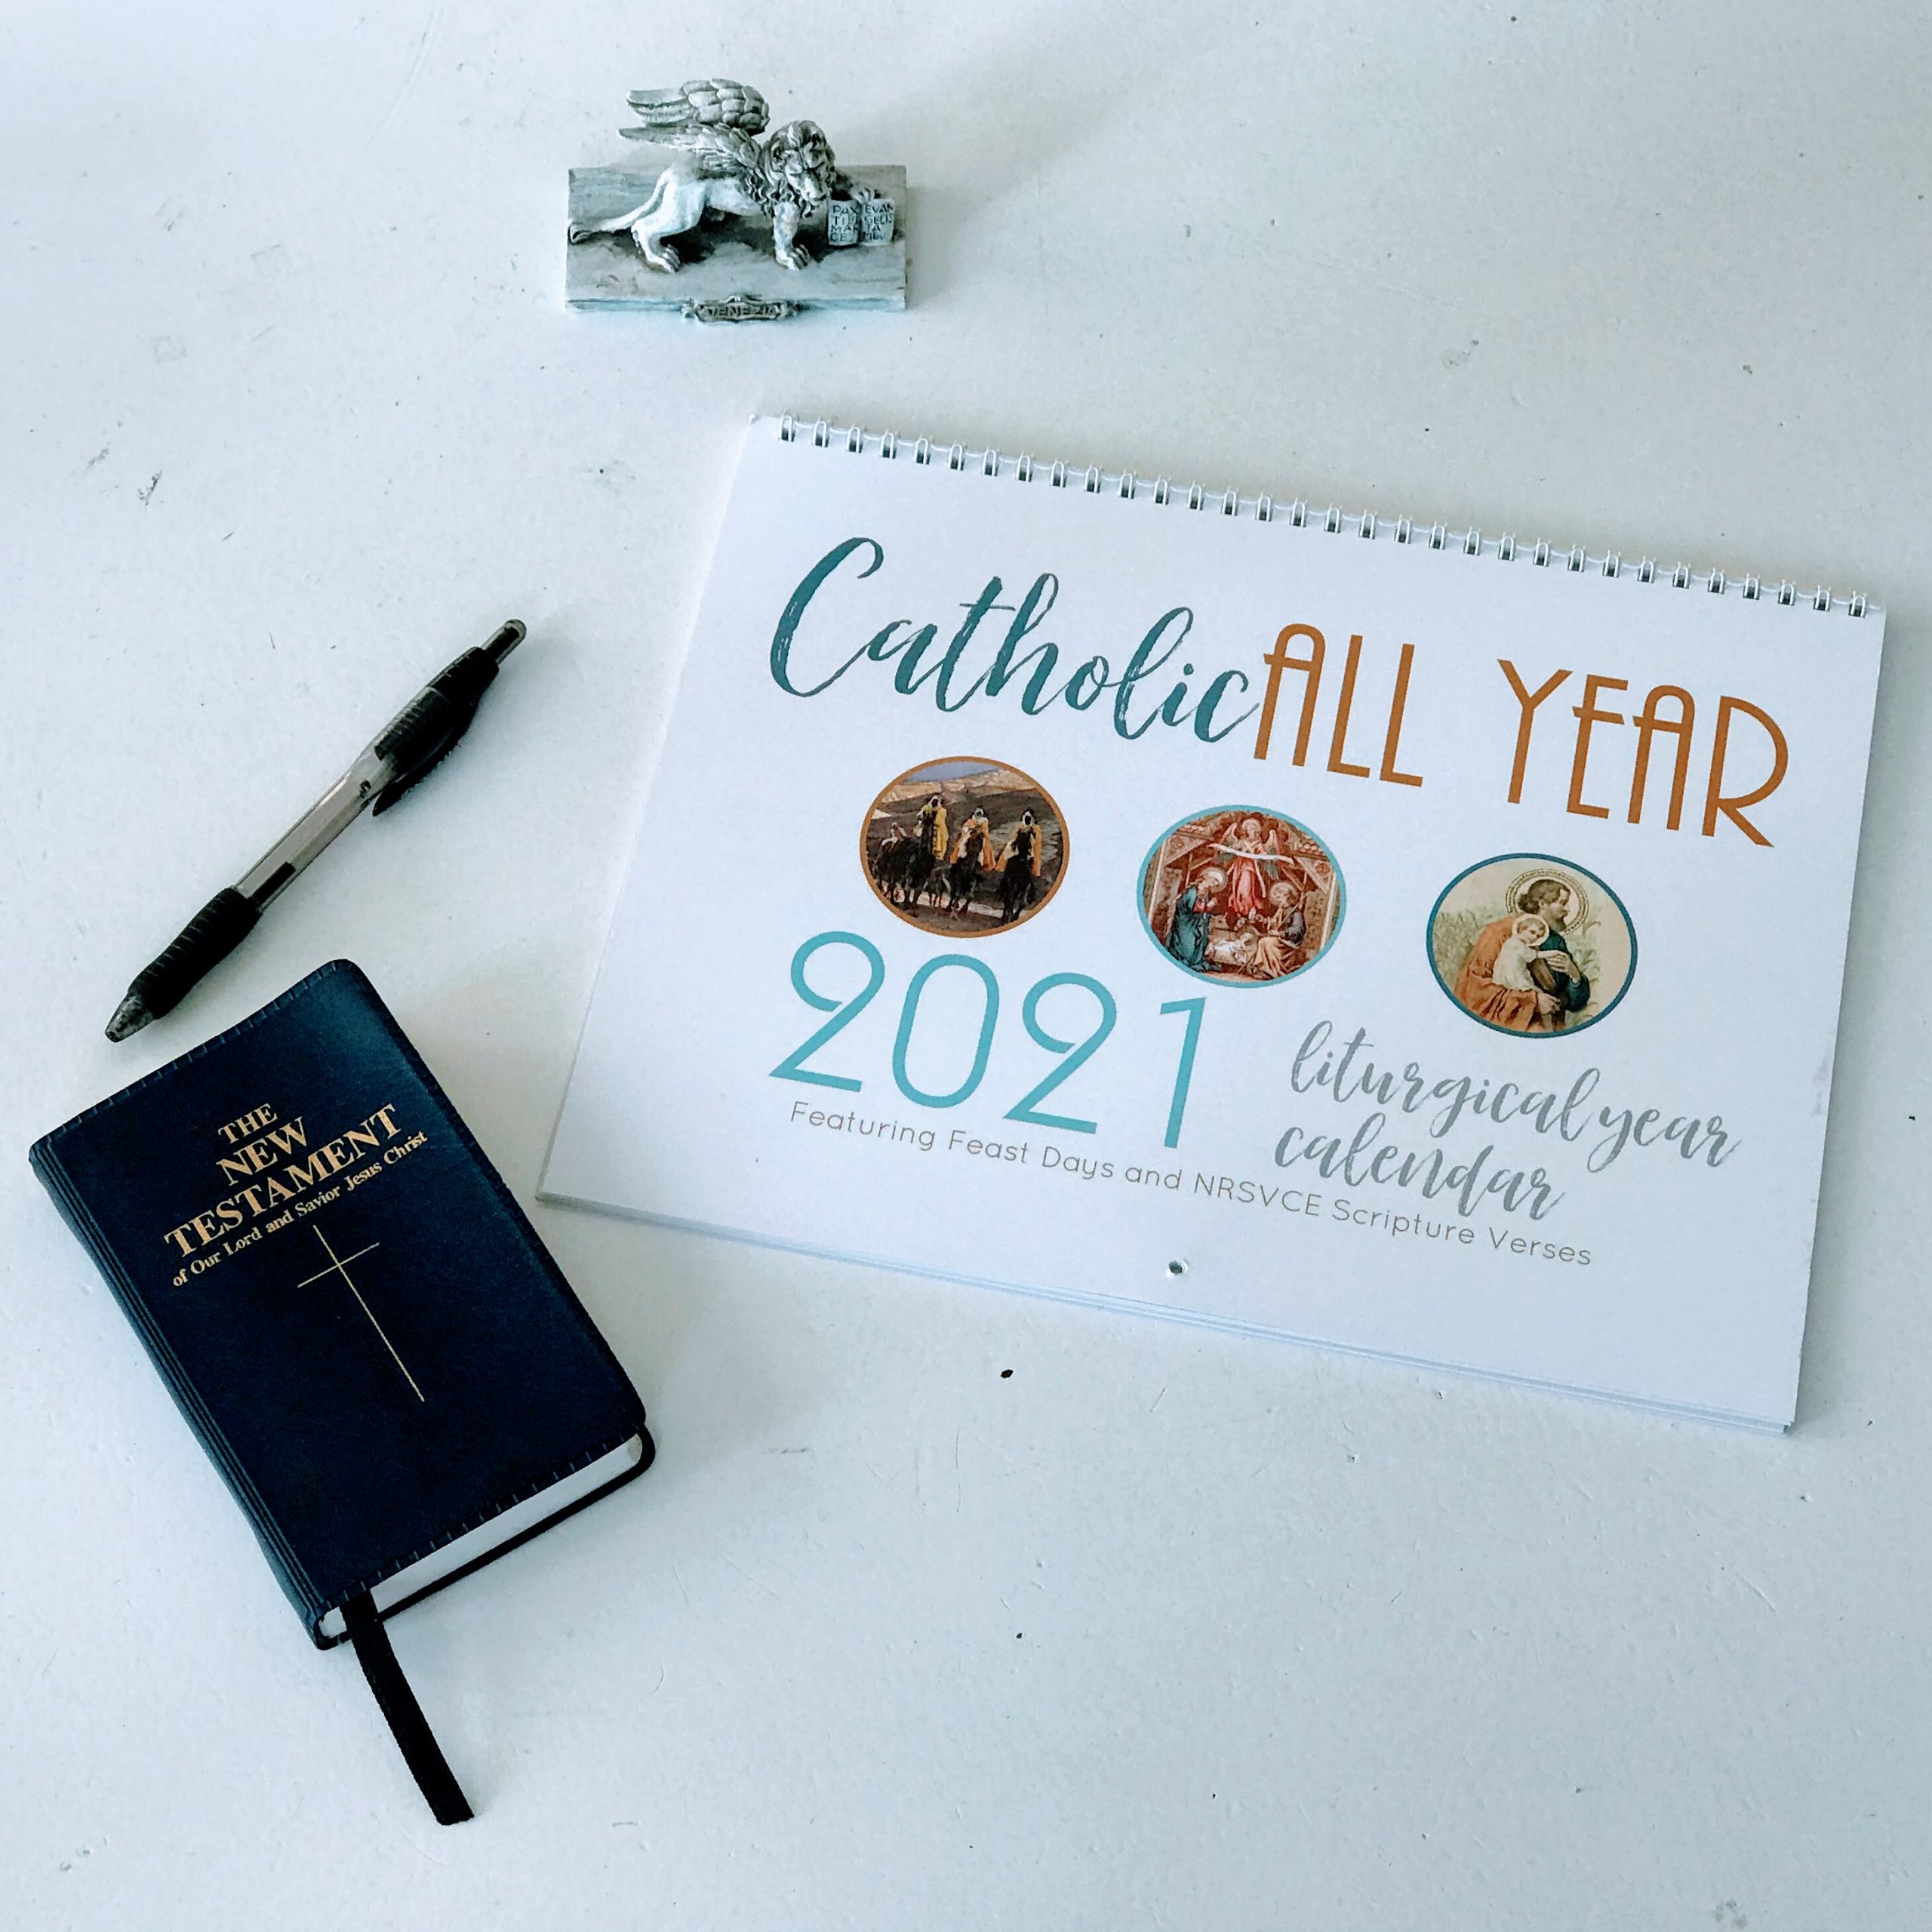 PAX EVAN
TI GELI
MAR STA
CE ME
VENEZIA
Catholic ALL YEAR
2021
liturgical year
calendar
Featuring Feast Days and NRSVCE Scripture Verses
THE
NEW
TESTAMENT
of Our Lord and Savior Jesus Christ